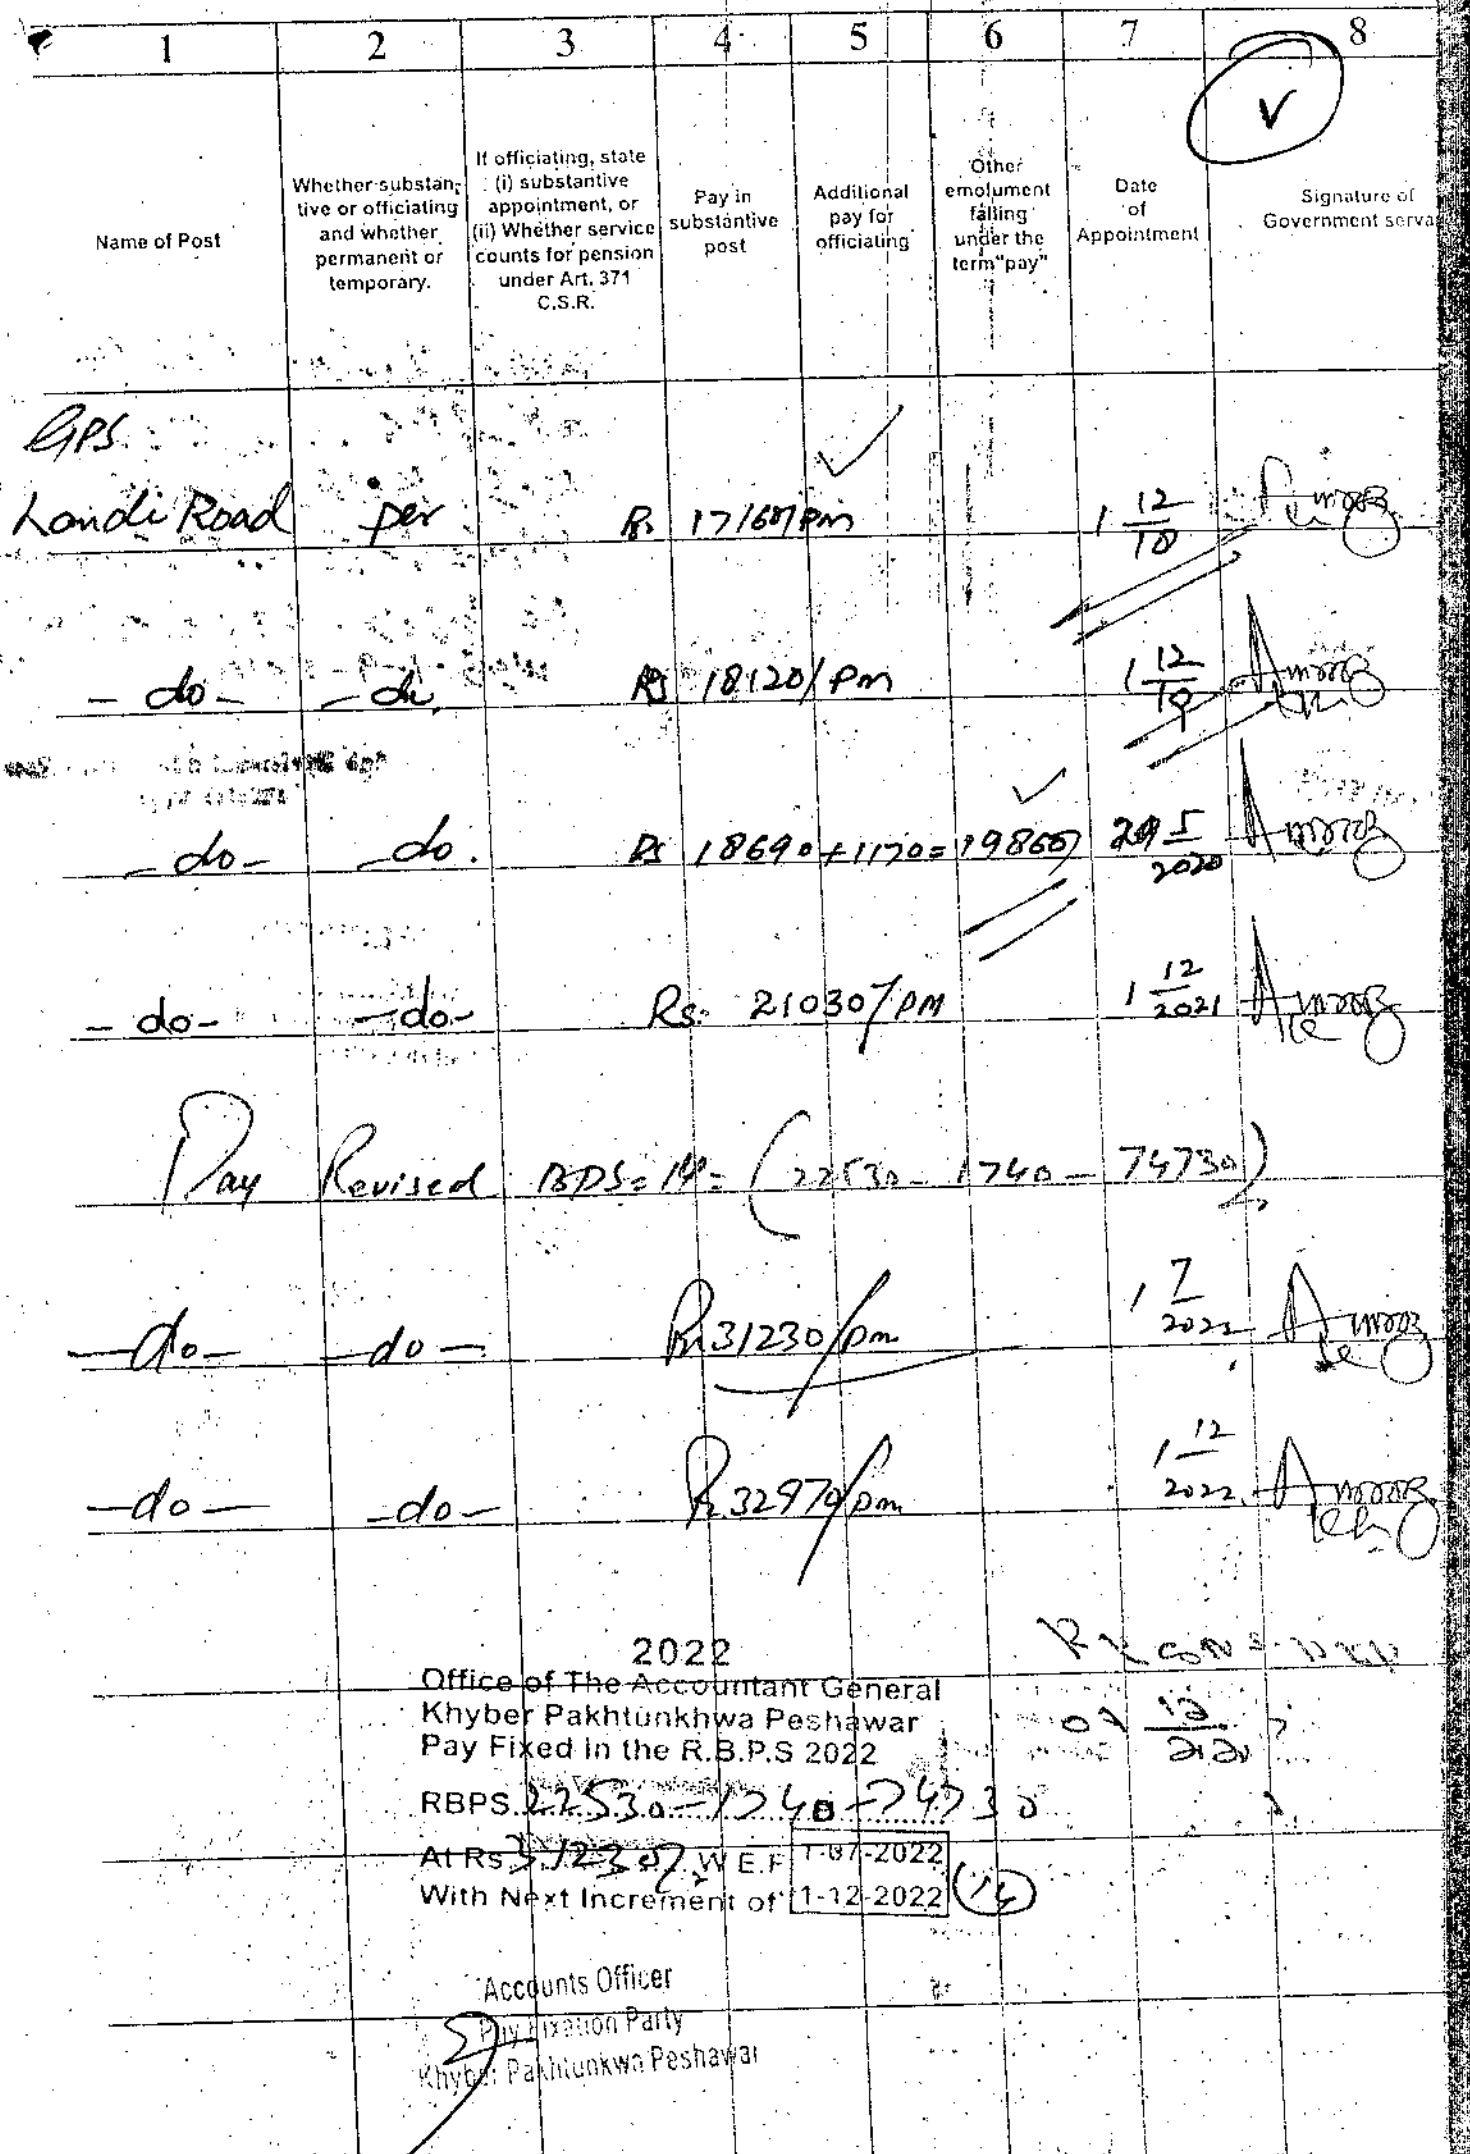 1 2 3 4 5 6 7 8
V
Name of Post
Whether substan-
tive or officiating
and whether
permanent or
temporary.
If officiating, state
(i) substantive
appointment, or
(ii) Whether service
counts for pension
under Art. 371
C.S.R.
Pay in
substantive
post
Additional
pay for
officiating
Other
emolument
falling
under the
term"pay"
Date
of
Appointment
Signature of
Government serva
GPS
Landi Road per Rs 17160/pm 1 12/18
- do - - do. Rs 18120/pm 1 12/19
- do - - do. Rs 18690+1170=19860/ 5/2020
- do - - do - Rs. 21030/PM 1 12/2021
Pay Revised BPS=14= (22530-1740-74730)
- do - - do - Rs 31230/pm 1 7/2022
- do - - do - Rs 32970/pm 1 12/2022
2022
Office of The Accountant General
Khyber Pakhtunkhwa Peshawar
Pay Fixed in the R.B.P.S 2022
RBPS..22530-1740-74730
At Rs 31230/. W E.F 1-07-2022
With Next Increment of 1-12-2022 (14)
Accounts Officer
Pay Fixation Party
Khyber Pakhtunkwa Peshawar